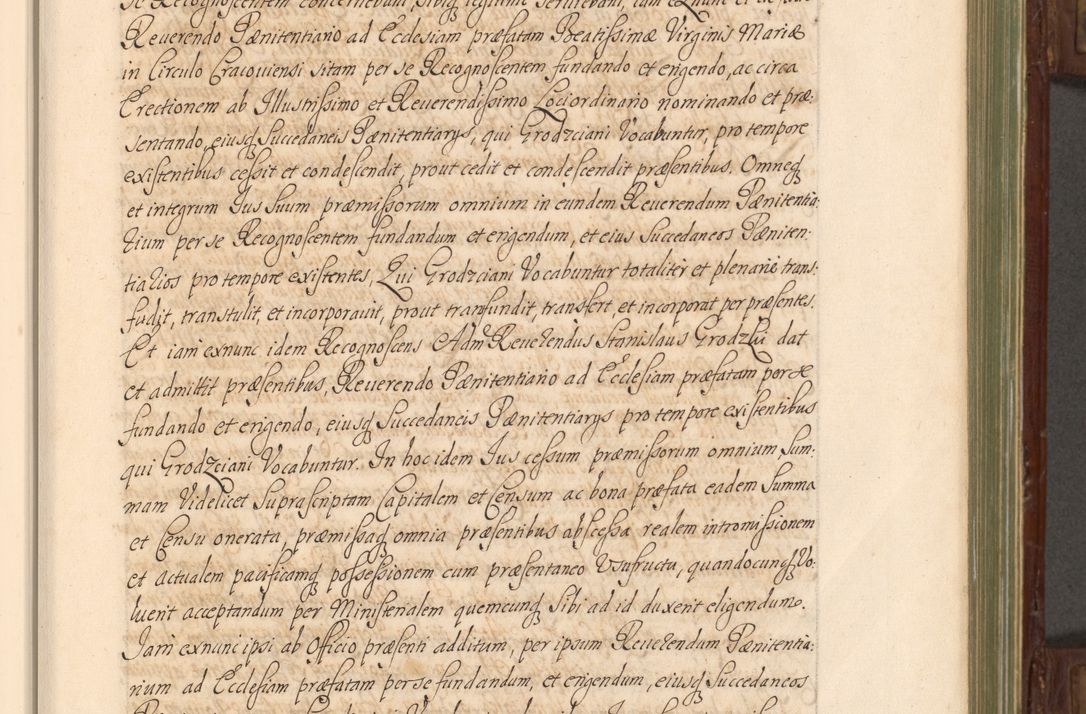 se Recognoscentem concernebant, sibiq legitime
Reuerendo Pænitentiario ad Ecclesiam præfatam Beatissimæ Virginis Mariæ
in Circulo Cracouiensi sitam per se Recognoscentem fundando et erigendo, ac circa
Erectionem ab Illustrissimo et Reuerendissimo Lociordinario nominando et præ:
sentando, eiusq Succedaneis Pænitentiarys, qui Grodzciani Vocabuntur, pro tempore
existentibus cessit et condescendit, prout cedit et condescendit præsentibus. Omneq
et integrum Jus Suum præmissorum omnium in eundem Reuerendum Pænitentia:
rium per se Recognoscentem fundandum et erigendum, et eius Succedaneos Pæniten:
tiarios pro tempore existentes, Qui Grodzciani Vocabuntur totaliter et plenarie trans:
fudit, transtulit, et incorporauit, prout transfundit, transfert, et incorporat per præsentes.
Et iam exnunc idem Recognoscens Adm Reuerendus Stanislaus Grodzki dat
et admittit præsentibus, Reuerendo Pænitentiario ad Ecclesiam præfatam per se
fundando et erigendo, eiusq Succedaneis Pænitentiarys pro tempore existentibus
qui Grodzciani Vocabuntur. In hoc idem Jus cessum præmissorum omnium Sum:
mam Videlicet Suprascriptam Capitalem et Censum ac bona præfata eadem Summa
et Censu onerata, præmissaq omnia præsentibus abscessa realem intromissionem
et actualem pacificamq possessionem cum præsentaneo Vsufructu, quandocunq Vo:
luerit acceptandum per Ministerialem quemcunq Sibi ad id duxerit eligendum.
Iam exnunc ipsi ab Officio præsenti additum, per ipsum Reuerendum Pænitentia:
rium ad Ecclesiam præfatam per se fundandum, et erigendum, eiusq Succedaneos